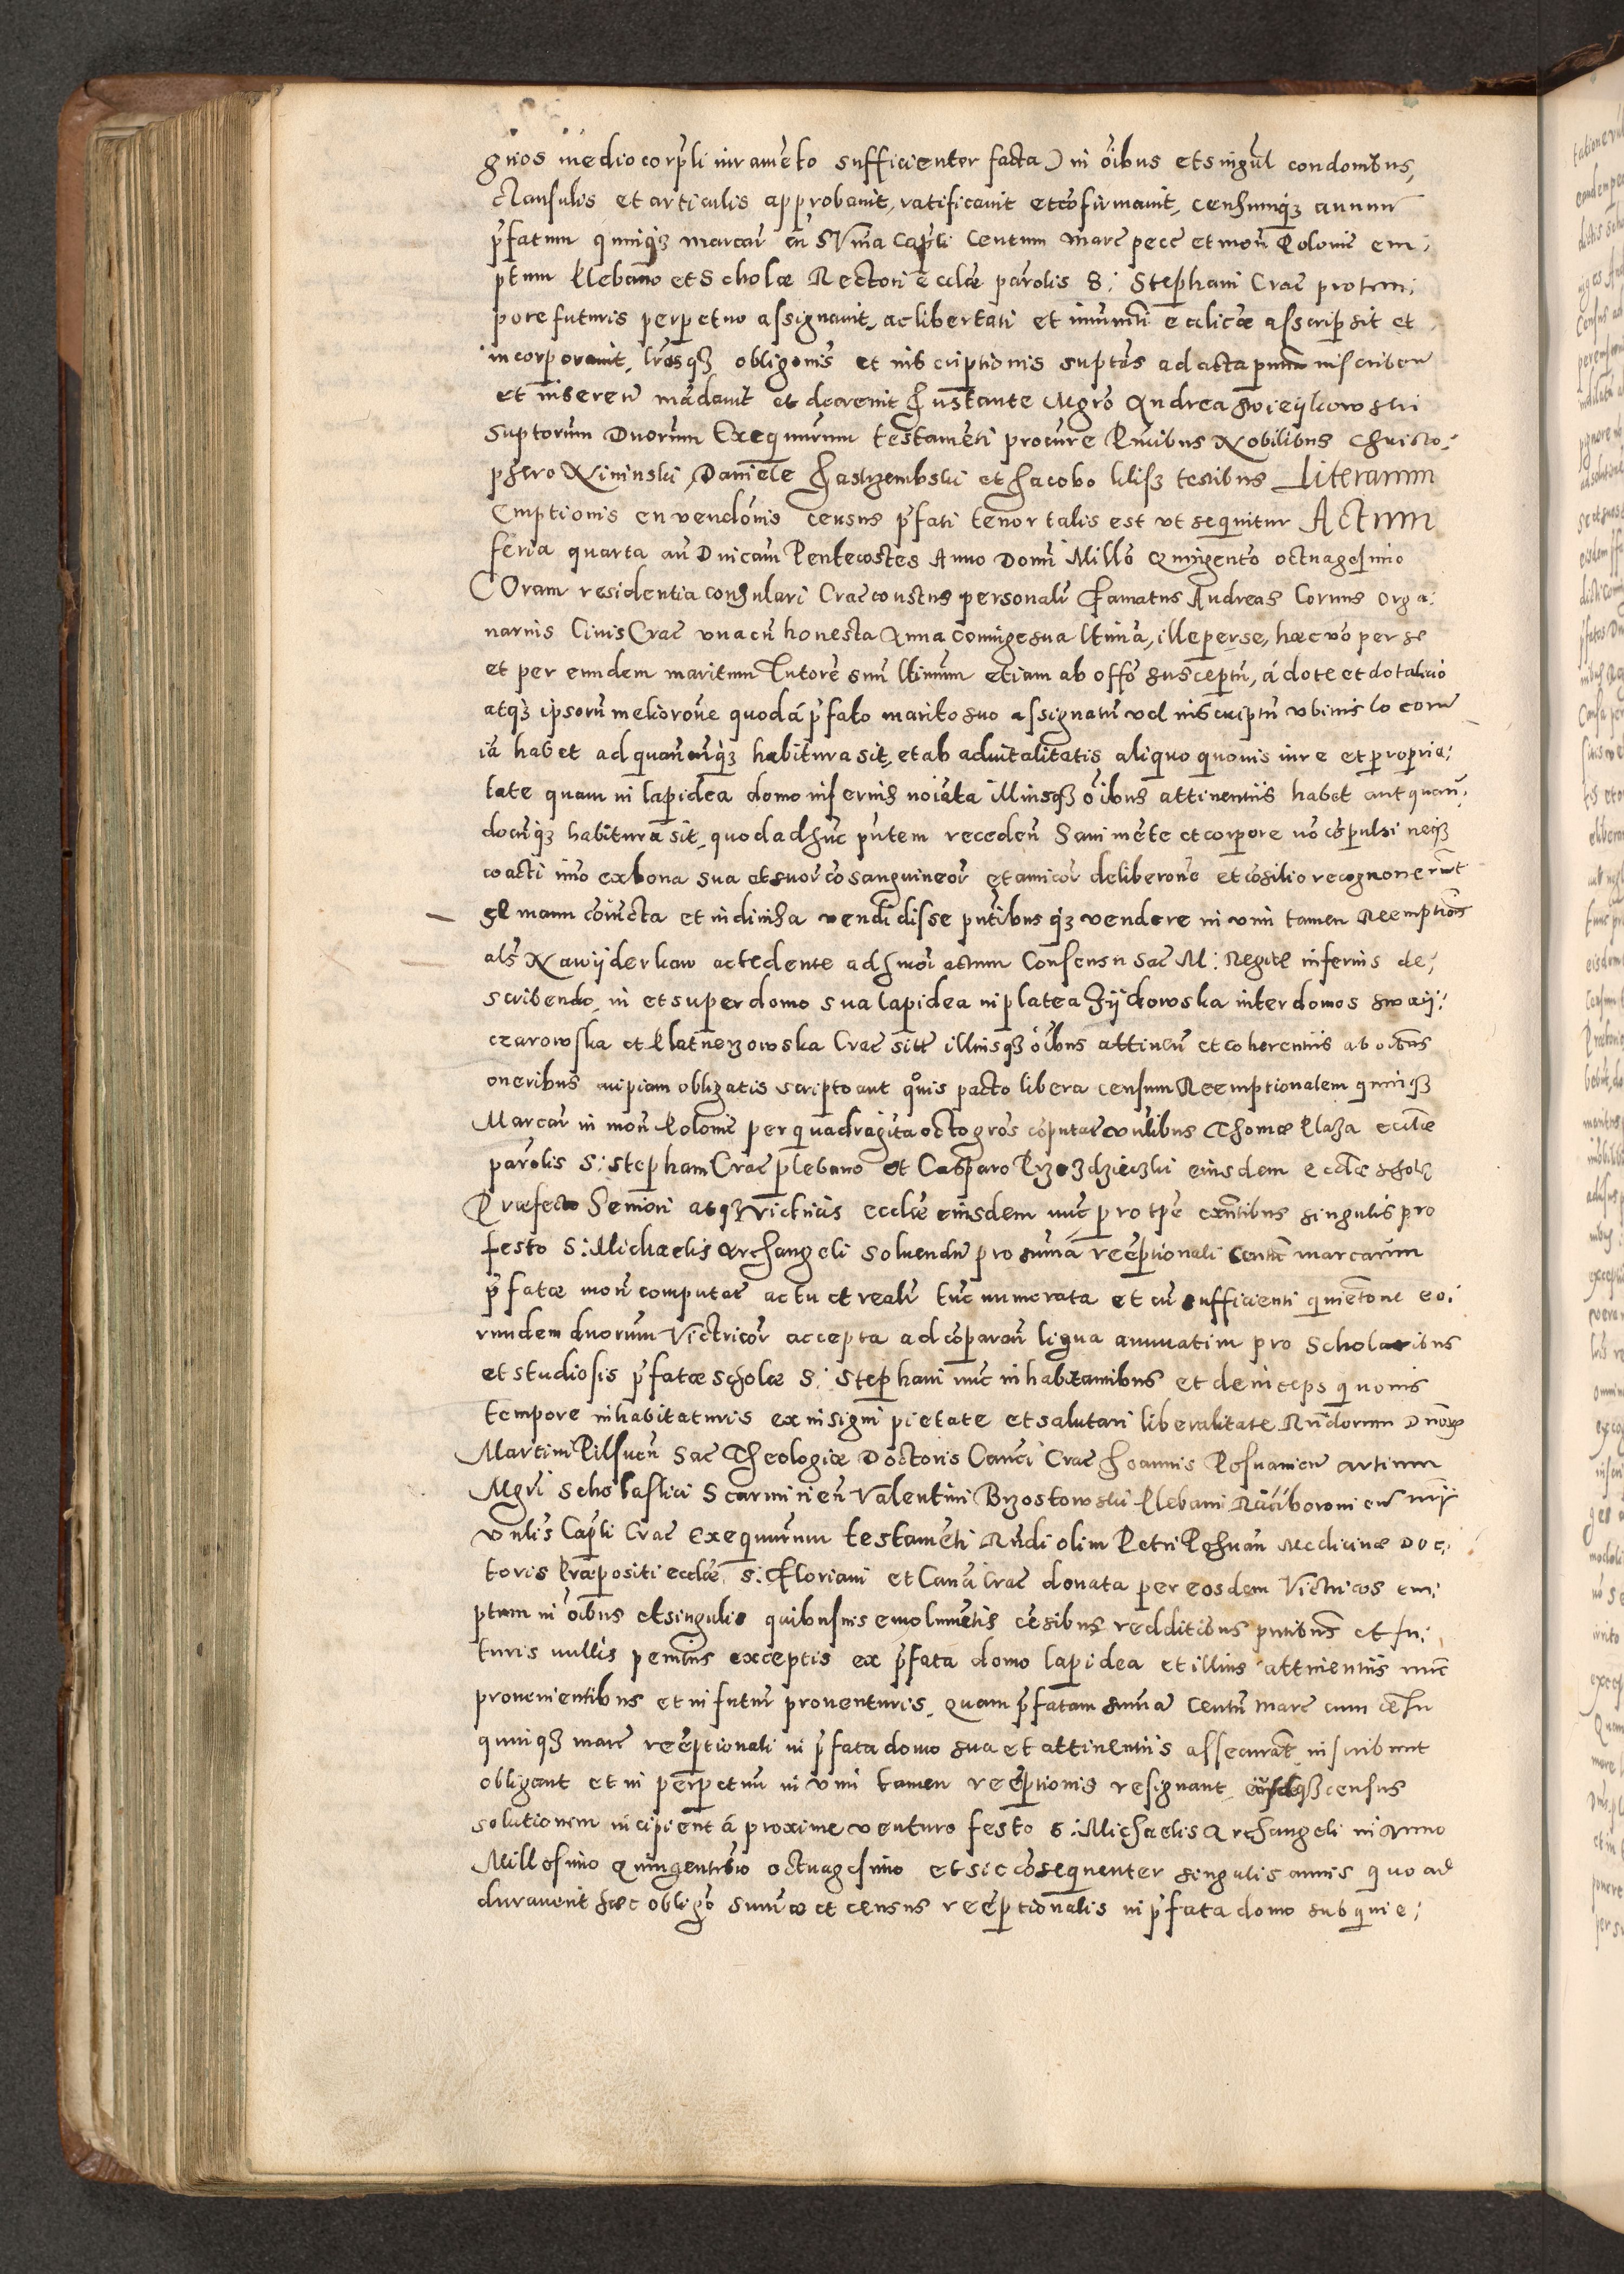 gnos medio corpli iuramēto sufficienter facta) in oībus et singul condonibus,
clausulis et articulis approbauit, ratificauit et cōfirmauit, censumqȝ annuū
pfatum quinqȝ marcar in sum̄a capli centum marc pecc et mon Polonic em:
ptum Plebano et Scholæ Rectori ecclæ parolis S: Stephani Crac pro tem:
pore futuris perpetuo assignauit, ac libertati et imunti eccliæ asscripsit et
incorporauit, lrasqȝ obligonis et inscriptionis suptas ad acta pnum inscribern
et inserern mādauit et decreuit Instante Mgro Andrea
suptorum Dnorum Exequturum testamēti procure Pntibus Nobilibus Christo:
phero Xininski, Daniele Jastrzembski et Jacobo testibus Literarum
Emptionis en vendonis census pfati tenor talis est vt sequitur Actum
feria quarta an Dnicam Pentecostes Anno Domi Millo Quingento octuagesimo
COram residentia consulari Crac constus personalr Famatus Andreas Corvus orga:
narius Ciuis Crac vna cū honesta Anna coniuge sua ltima, ille per se, hæc vo per se
et per eundem maritum Tutorē suū ltimum etiam ab offo susceptū, à dote et dotalicio
atqȝ ipsorū meliorone quod à pfato marito suo assignatū vel inscriptū vbiuis locorū
iā habet ad quanunqȝ habitura sit, et ab aduitalitatis aliquo quouis iure et proprie:
tate quam in lapidea domo inferius noiata illiusqȝ oībus attinentiis habet aut quan:
docūqȝ habitura sit, quod ad hūc pntem receden Sani mēte et corpore nō cōpulsi neqȝ
coacti imo ex bona sua et suor cōsanguineor et amicor deliberone et cōsilio recognouerūt
se manu coniucta et indiuisa vendidisse pntibusqȝ vendere in vim tamen Reemptiois
als Nawyderkaw accedente ad actum Consensu Sac M: Regie inferius de:
scribendo, in et super domo sua lapidea in platea Zydowska inter domos Sway:
czarowska et Platnerzowska Crac sitt illiusqȝ oībus attinen et coherentiis ab oībus
oneribus cuipiam obligatis scripto aut quis pacto libera censum Reemptionalem quinqȝ
Marcar in mon Polonic per quadraginta octo gros cōputan Thomæ Plaza ecclæ
parolis S: Stephani Crac plebano et Casparo eiusdem ecclæ scholæ
Præfecto Seniori atqȝ victricis ecclæ eiusdem nūc pro tpe exntibus singulis pro
festo S: Michaelis Archangeli soluendū pro sum̄a reēptionali centū marcarum
pfatæ mon computan actu et realr tūc numerata et cū sufficienti quietone eo:
rundem duorum Victricor accepta ad cōparan ligna annuatim pro Scholaribus
et studiosis pfatæ scholæ S: Stephani nūc inhabitantibus et deinceps quouis
tempore inhabitaturis ex insigni pietate et salutari liberalitate Rndorum Dnorū
Martini Pilsnen Sac Theologiæ Doctoris Canci Crac Joannis Posnanien artium
Mgri Scholastici Scarmirien Valentini Brzostowski Plebani
Capli Crac exequturum testamēti Rndi olim Petri Posnan Medicinæ Doc:
toris Præpositi ecclæ S: Floriani et Canci Crac donata per eosdem Victricos em:
ptum in oībus et singulis quibusuis emolumētis cēsibus redditibus pntibus et fu:
turis nullis penitus exceptis ex pfata domo lapidea et illius attinentiis nūc
prouenientibus et in futur prouenturis, quam pfatam sum̄a Centū Marc cum cēsu
quinqȝ marc reēptionali in pfata domo sua et attinentiis assecurāt inscribunt
obligant et in perpetuū in vim tamen reēptionis resignant census
solutionem incipient à proxime venturo festo S: Michaelis Archangeli in Anno
Millesimo Quingentesimo octuagesimo et sic cōsequenter singulis annis quoad
durauerit hæc obligo sum̄æ et census reēptionalis in pfata domo sub quie: